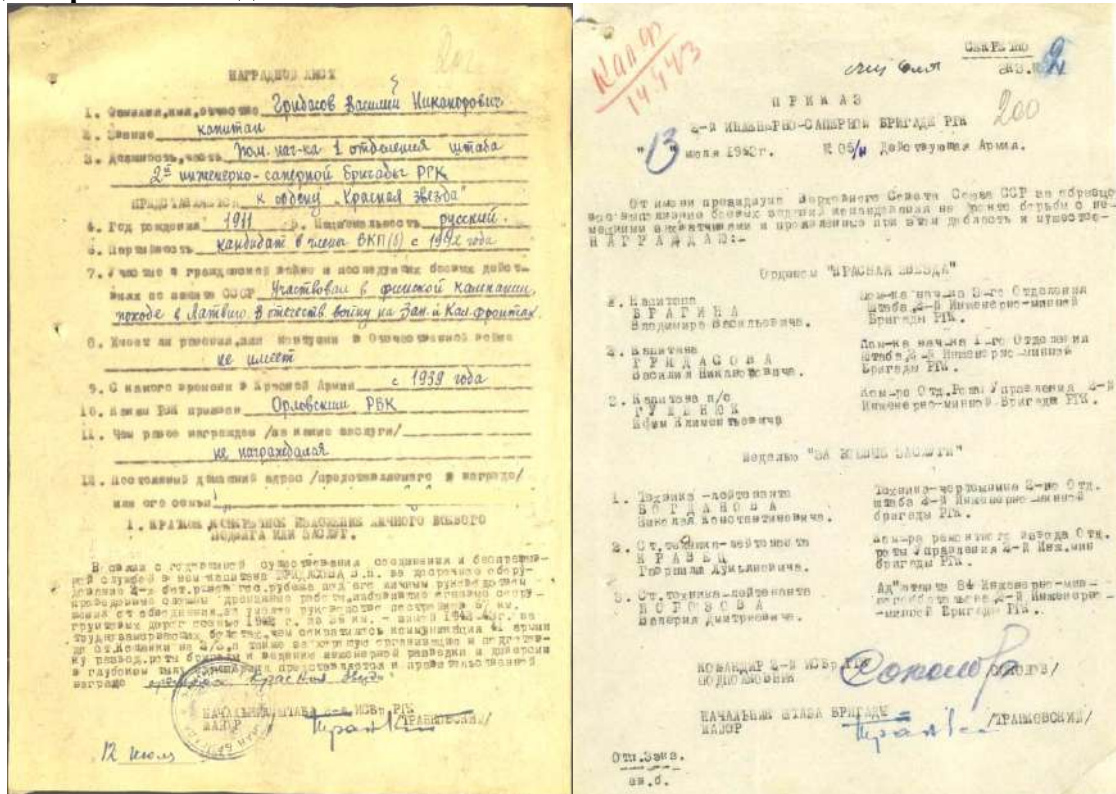 НАГРАДНОЙ ЛИСТ
1. Фамилия, имя, отчество Гридасов Василий Никанорович
2. Звание капитан
3. Должность, часть Пом. нач-ка 1 отделения штаба
2й инженерно-саперной бригады РГК
ПРЕДСТАВЛЯЕТСЯ к ордену "Красная звезда"
4. Год рождения 1911 5. Национальность русский.
6. Партийность кандидат в члены ВКП(б) с 1942 года
7. Участие в гражданской войне и последующих боевых дейст-
виях по защите СССР Участвовал в финской кампании,
походе в Латвию. В отечеств. войну на Зап. и Кал. фронтах
8. Имеет ли ранения, или контузии в Отечественной войне
не имеет
9. С какого времени в Красной Армии с 1939 года
10. Каким РВК призван Орловским РВК
11. Чем ранее награжден /за какие заслуги/
не награждался
12. Постоянный домашний адрес /представляемого к награде/
или его семьи
1. КРАТКОЕ КОНКРЕТНОЕ ИЗЛОЖЕНИЕ ЛИЧНОГО БОЕВОГО
ПОДВИГА ИЛИ ЗАСЛУГ.
В связи с годовщиной существования соединения и беспрерыв-
ной службой в нем капитана ГРИДАСОВА В.Н. за досрочное обору-
дование
грунтовых дорог осенью 1942 г.
чем сократилась коммуникация 41 армии
а также за хорошую организацию и подготов-
ку развед.роты бригады к ведению инженерной разведки и диверсии
в глубоком тылу представляется к правительственной
награде ордену "Красная Звезда"
НАЧАЛЬНИК ШТАБА 2-й ИСБр. РГК
МАЙОР /ТРАНКОВСКИЙ/
12 июля
Кал ф
14.443
СЕКРЕТНО
экз. № 2
200
ПРИКАЗ
2-й ИНЖЕНЕРНО-САПЕРНОЙ БРИГАДЫ РГК
"13" июля 1943г. № 05/н Действующая Армия.
От имени президиума Верховного Совета Союза ССР за образцо-
вое выполнение боевых заданий командования на фронте борьбы с не-
мецкими захватчиками и проявленные при этом доблесть и мужество-
НАГРАЖДАЮ:-
Орденом "КРАСНАЯ ЗВЕЗДА"
1. Капитана
БРАГИНА
Владимира Васильевича.
Пом-ка нач-ка 2-го Отделения
штаба, 2-й Инженерно-минной
Бригады РГК.
2. Капитана
ГРИДАСОВА
Василия Никаноровича.
Пом-ка нач-ка 1-го Отделения
штаба, 2-й Инженерно-минной
Бригады РГК.
3. Капитана п/с
Ефим Климентьевича
Ком-ра Отд.Роты Управления 2-й
Инженерно-минной Бригады РГК.
Медалью "ЗА БОЕВЫЕ ЗАСЛУГИ"
1. Техника-лейтенанта
БОГДАНОВА
Николая Константиновича.
Техника-чертежника 2-го Отд.
штаба 2-й Инженерно-минной
бригады РГК.
2. Ст. техника-лейтенанта
КРАВЕЦ
Гавриила Лукьяновича.
Ком-ра ремонтного взвода Отд.
роты Управления 2-й Инж.мин
бригады РГК.
3. Ст. техника-лейтенанта
МОРОЗОВА
Валерия Дмитриевича.
Ад"ютанта 84 Инженерно-мин-
ного батальона 2-й Инженерно-
-минной Бригады РГК.
КОМАНДИР 2-й ИСБр. РГК
ПОДПОЛКОВНИК Соколов /СОКОЛОВ/
НАЧАЛЬНИК ШТАБА БРИГАДЫ
МАЙОР /ТРАНКОВСКИЙ/